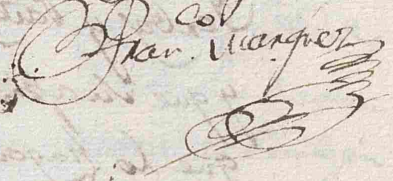 Fran.co Marquez